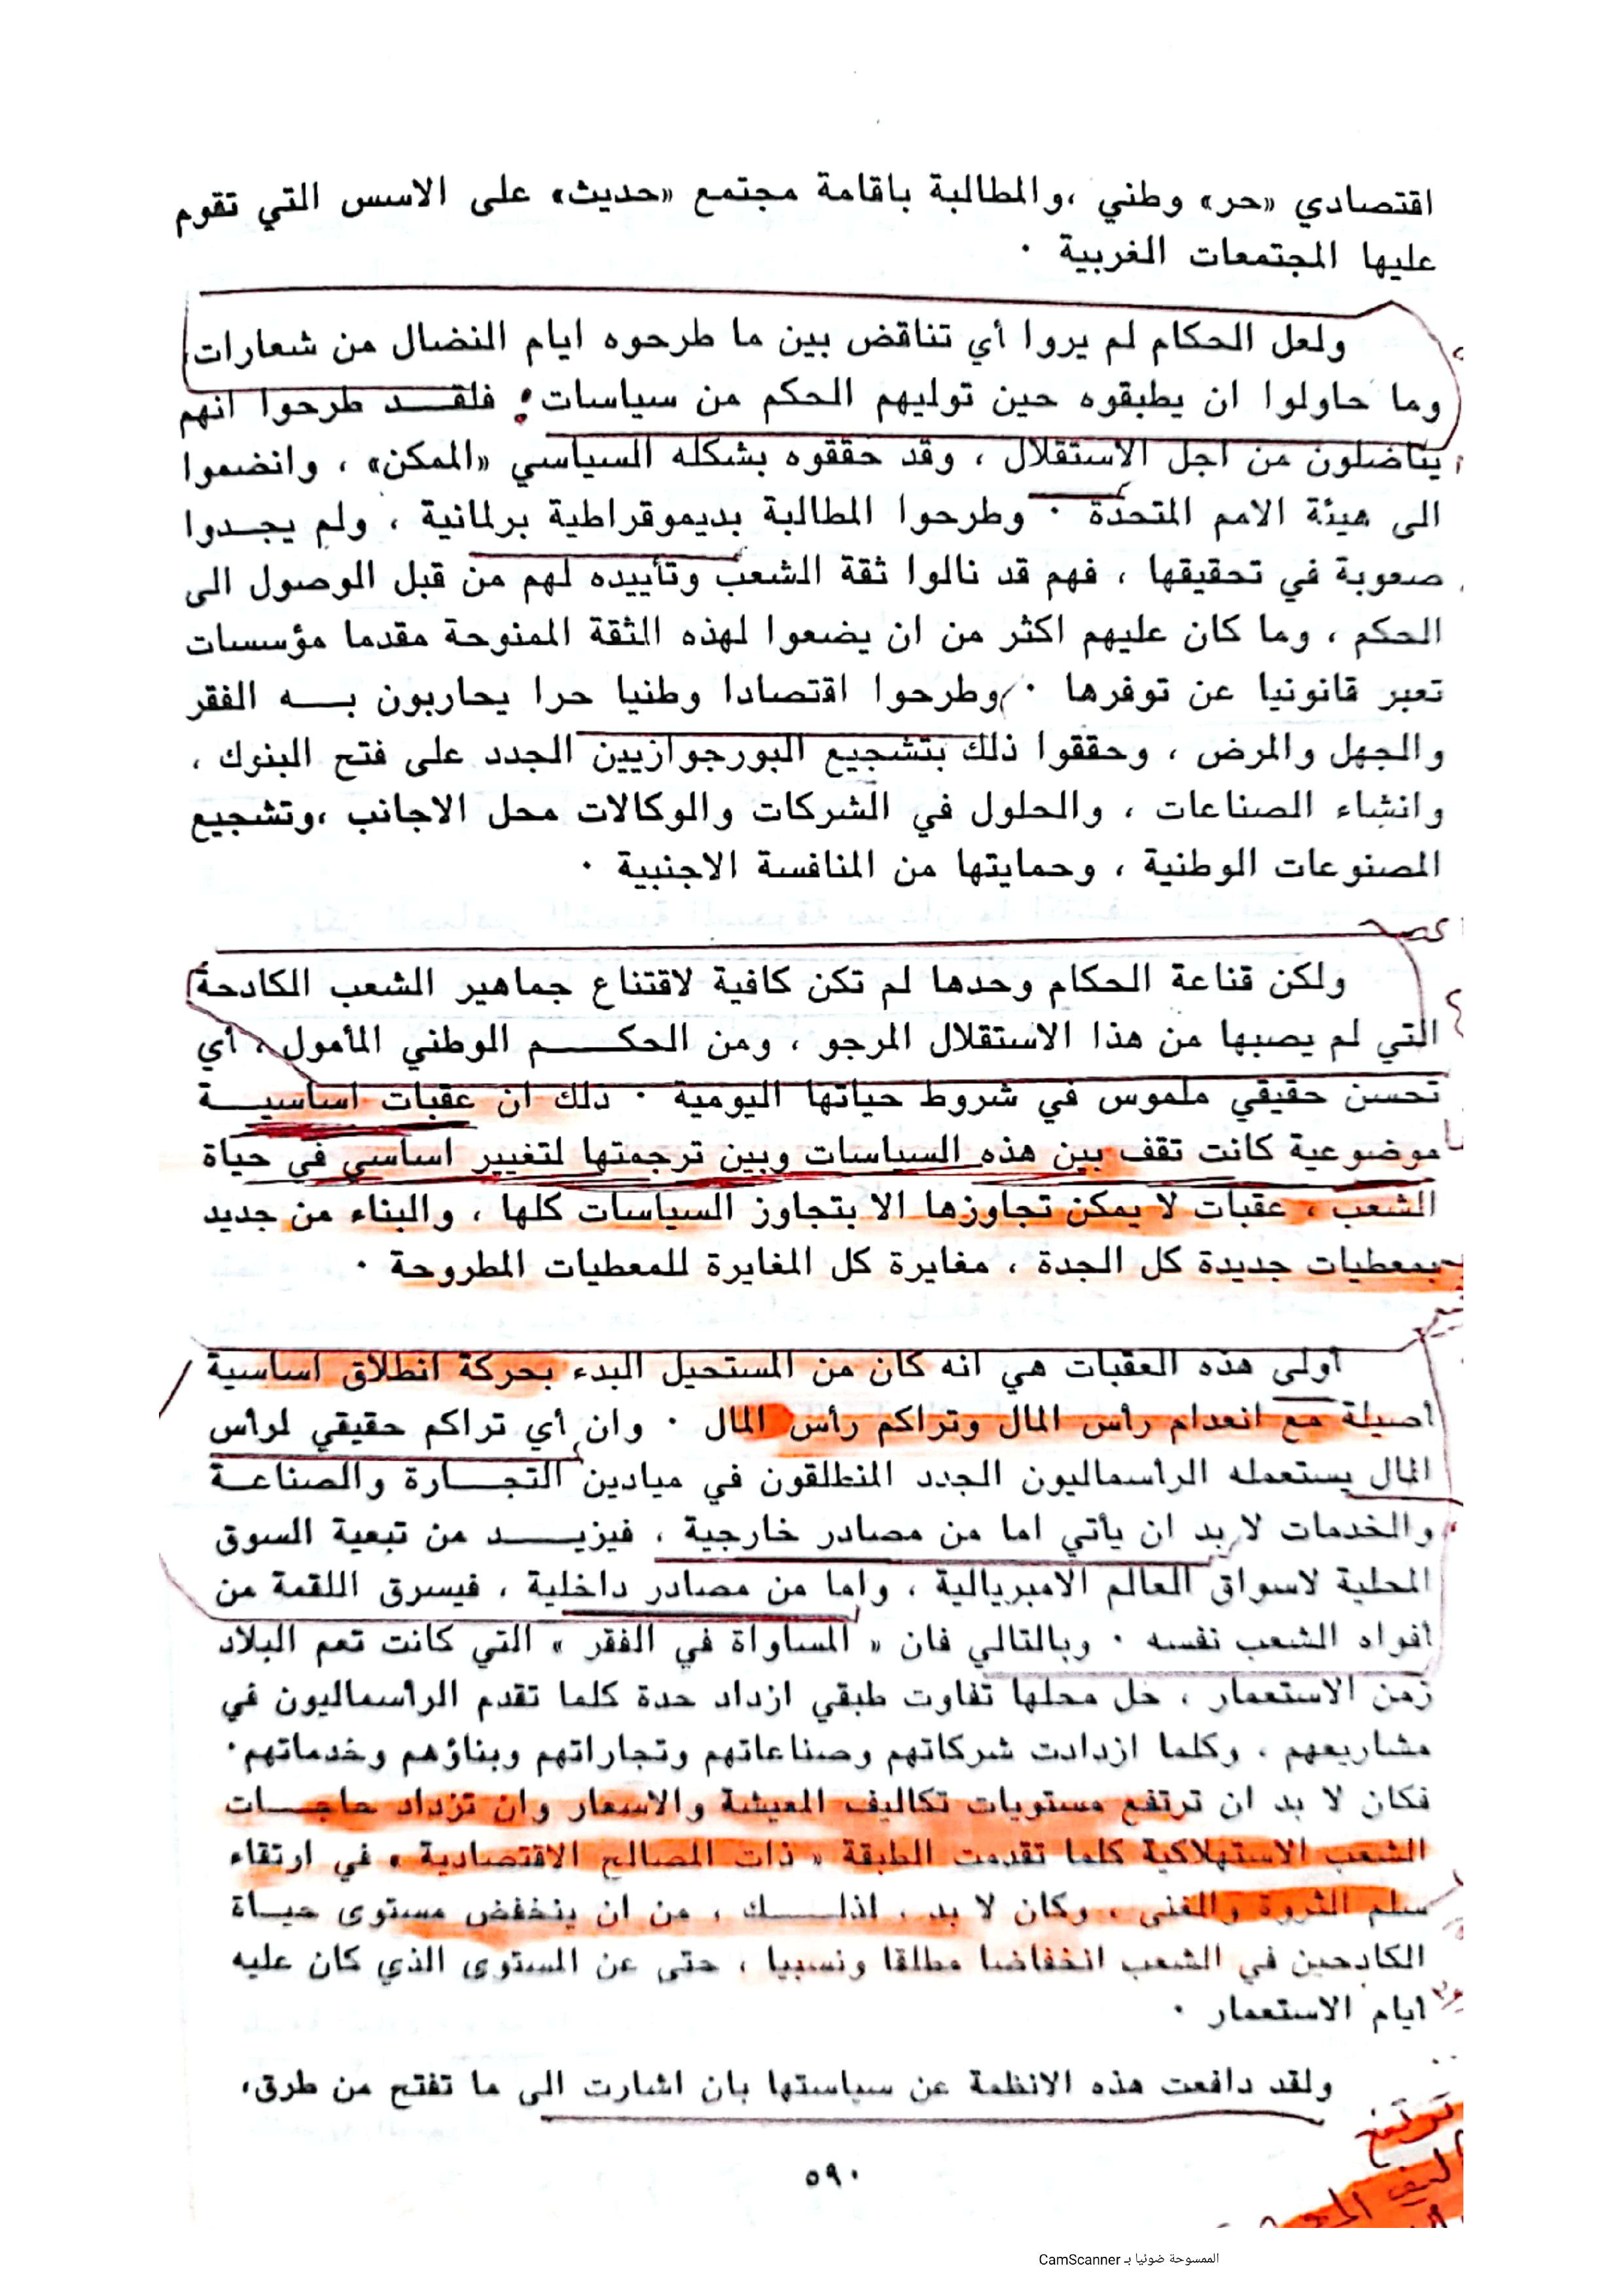 اقتصادي «حر» وطني ،والمطالبة باقامة مجتمع «حديث» على الاسس التي تقوم
عليها المجتمعات الغربية ٠
ولعل الحكام لم يروا أي تناقض بين ما طرحوه ايام النضال من شعارات
وما حاولوا ان يطبقوه حين توليهم الحكم من سياسات : فلقد طرحوا انهم
يناضلون من اجل الاستقلال ، وقد حققوه بشكله السياسي «الممكن» ، وانضموا
الى هيئة الامم المتحدة ٠ وطرحوا المطالبة بديموقراطية برلمانية ، ولم يجدوا
صعوبة في تحقيقها ، فهم قد نالوا ثقة الشعب وتأييده لهم من قبل الوصول الى
الحكم ، وما كان عليهم اكثر من ان يضعوا لهذه الثقة الممنوحة مقدما مؤسسات
تعبر قانونيا عن توفرها ٠ وطرحوا اقتصادا وطنيا حرا يحاربون به الفقر
والجهل والمرض ، وحققوا ذلك بتشجيع البورجوازيين الجدد على فتح البنوك ،
وانشاء الصناعات ، والحلول في الشركات والوكالات محل الاجانب ،وتشجيع
المصنوعات الوطنية ، وحمايتها من المنافسة الاجنبية ٠
ولكن قناعة الحكام وحدها لم تكن كافية لاقتناع جماهير الشعب الكادحة
التي لم يصبها من هذا الاستقلال المرجو ، ومن الحكم الوطني المأمول ، أي
تحسن حقيقي ملموس في شروط حياتها اليومية ٠ ذلك ان عقبات اساسية
موضوعية كانت تقف بين هذه السياسات وبين ترجمتها لتغيير اساسي في حياة
الشعب ، عقبات لا يمكن تجاوزها الا بتجاوز السياسات كلها ، والبناء من جديد
بمعطيات جديدة كل الجدة ، مغايرة كل المغايرة للمعطيات المطروحة ٠
أولى هذه العقبات هي انه كان من المستحيل البدء بحركة انطلاق اساسية
أصيلة مع انعدام رأس المال وتراكم رأس المال ٠ وان أي تراكم حقيقي لرأس
المال يستعمله الرأسماليون الجدد المنطلقون في ميادين التجارة والصناعة
والخدمات لا بد ان يأتي اما من مصادر خارجية ، فيزيد من تبعية السوق
المحلية لاسواق العالم الامبريالية ، واما من مصادر داخلية ، فيسرق اللقمة من
أفواه الشعب نفسه ٠ وبالتالي فان « المساواة في الفقر » التي كانت تعم البلاد
زمن الاستعمار ، حل محلها تفاوت طبقي ازداد حدة كلما تقدم الرأسماليون في
مشاريعهم ، وكلما ازدادت شركاتهم وصناعاتهم وتجاراتهم وبناؤهم وخدماتهم٠
فكان لا بد ان ترتفع مستويات تكاليف المعيشة والاسعار وان تزداد حاجات
الشعب الاستهلاكية كلما تقدمت الطبقة « ذات المصالح الاقتصادية » في ارتقاء
سلم الثروة والغنى ، وكان لا بد ، اذلك ، من ان ينخفض مستوى حياة
الكادحين في الشعب انخفاضا مطلقا ونسبيا ، حتى عن المستوى الذي كان عليه
ايام الاستعمار ٠
ولقد دافعت هذه الانظمة عن سياستها بان اشارت الى ما تفتح من طرق،
ترتفع
٥٩٠
الممسوحة ضوئيا بـ CamScanner